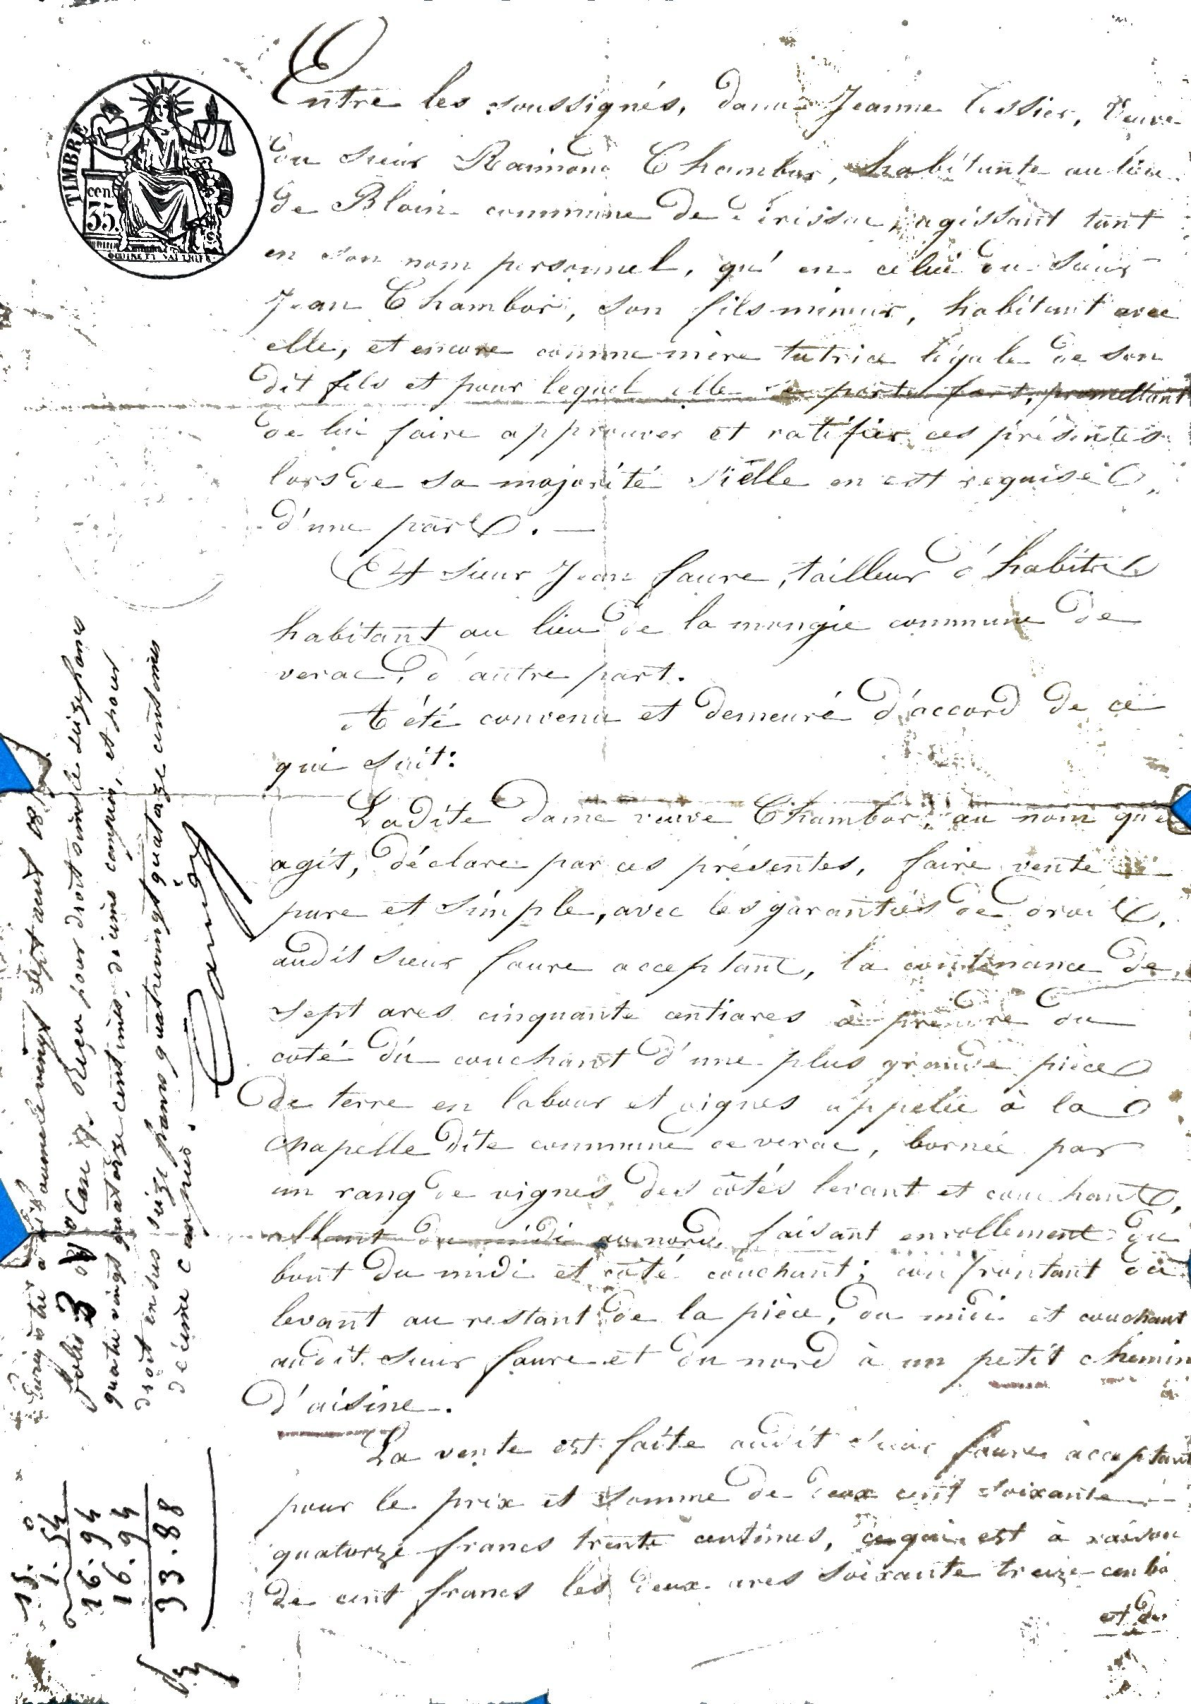 TIMBRE
cen.
35.
Entre les soussignés, dame Jeanne Tessier, Veuve
du sieur Raimond Chambor, habitante au lieu
de Blain commune de agissant tant
en son nom personnel, qu'en celui du sieur
Jean Chambor, son fils mineur, habitant avec
elle, et encore comme mère tutrice légale de son
dit fils et pour lequel elle se porte fort, promettant
de lui faire approuver et ratifier ces présentes
lors de sa majorité si elle en est requise,
d'une part. —
Et sieur Jean faure, tailleur d'habits
habitant au lieu de la mongie commune de
verac, d'autre part.
A été convenu et demeuré d'accord de ce
qui suit:
Ladite dame veuve Chambor, au nom qu'elle
agit, déclare par ces présentes, faire vente
pure et simple, avec les garanties de droit,
audit sieur faure acceptant, la contenance de
sept ares cinquante centiares à prendre du
coté du couchant d'une plus grande pièce
de terre en labour et vignes appelée à la
chapelle dite commune de verac, bornée par
un rang de vignes des côtés levant et couchant,
allant du midi au nord, faisant enrollement du
bout du midi et côté couchant; confrontant du
levant au restant de la pièce, du midi et couchant
audit sieur faure et du nord à un petit chemin
d'aisine.
La vente est faite audit sieur faure acceptant
pour le prix et somme de deux cent soixante
quatorze francs trente centimes, ce qui est à raison
de cent francs les deux ares soixante treize centia
et de
Enregistré à le vingt sept août 18
folio 3 Case 9. Reçu pour droit simple seize francs
quatre vingt quatorze centimes, décime compris, et pour
droit en sus seize francs quatre vingt quatorze centimes
décime compris.
15.
1.54
16.94
16.94
33.88